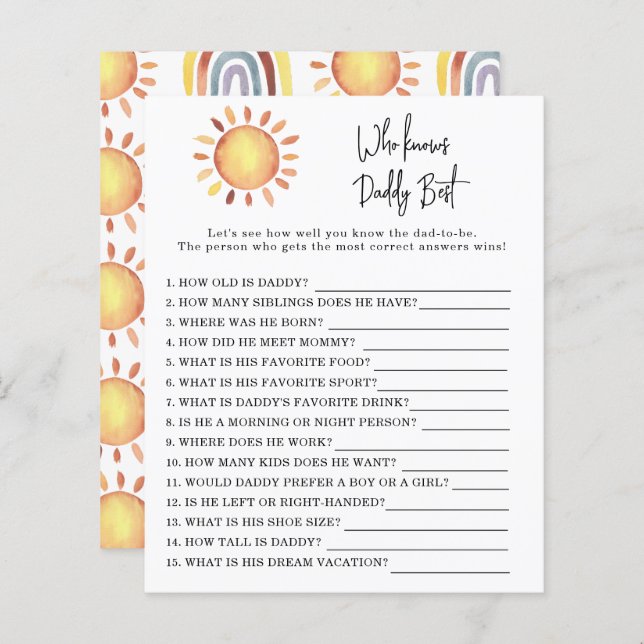 Who knows
Daddy Best
Let's see how well you know the dad-to-be.
The person who gets the most correct answers wins!
1. HOW OLD IS DADDY?
2. HOW MANY SIBLINGS DOES HE HAVE?
3. WHERE WAS HE BORN?
4. HOW DID HE MEET MOMMY?
5. WHAT IS HIS FAVORITE FOOD?
6. WHAT IS HIS FAVORITE SPORT?
7. WHAT IS DADDY'S FAVORITE DRINK?
8. IS HE A MORNING OR NIGHT PERSON?
9. WHERE DOES HE WORK?
10. HOW MANY KIDS DOES HE WANT?
11. WOULD DADDY PREFER A BOY OR A GIRL?
12. IS HE LEFT OR RIGHT-HANDED?
13. WHAT IS HIS SHOE SIZE?
14. HOW TALL IS DADDY?
15. WHAT IS HIS DREAM VACATION?